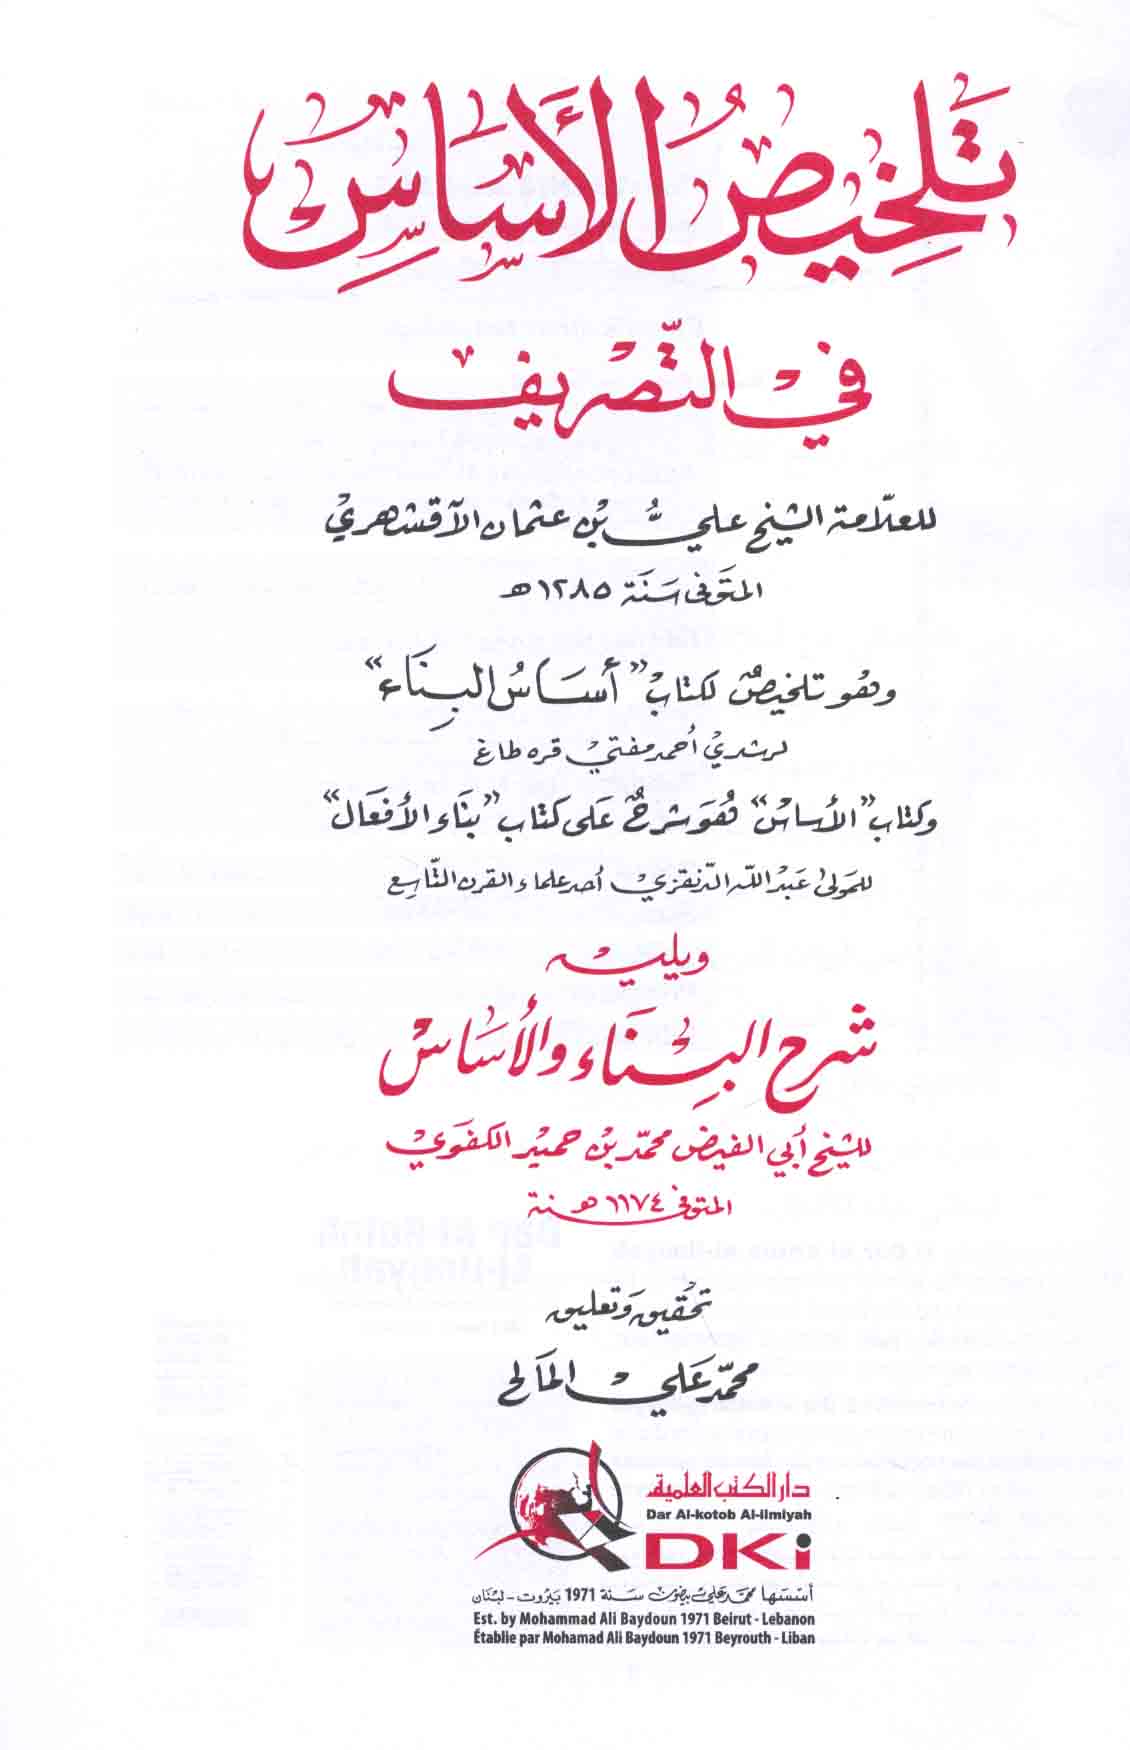 تَلخِيصُ الأَسَاسِ
في التّصريف
للعلّامة الشيخ علي بن عثمان الآقشهري
المتوفى سَنَة ١٢٨٥ هـ
وهو تلخيصٌ لكتاب "أسَاسُ البِنَاء"
لرشدي أحمد مفتي قره طاغ
وكتاب "الأساس" هُوَ شرحٌ عَلى كتاب "بنَاء الأفعَال"
للمولى عَبد الله الدنقزي أحد علماء القرن التّاسِع
ويليه
شرح البِنَاء والأسَاس
للشيخ أبي الفيض محمّد بن حميد الكفَوي
المتوفى سنة ١١٧٤ هـ
تحقيق وَتعليق
محمّد عَلي المَالح
دار الكتب العلمية
Dar Al-kotob Al-ilmiyah
DKi
أسسها محمد علي بيضون سنة 1971 بيروت - لبنان
Est. by Mohammad Ali Baydoun 1971 Beirut - Lebanon
Établie par Mohamad Ali Baydoun 1971 Beyrouth - Liban